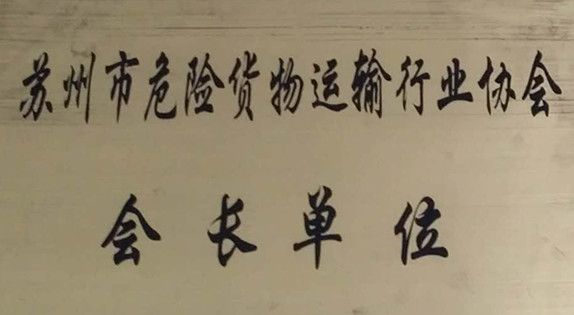 苏州市危险货物运输行业协会
会长单位